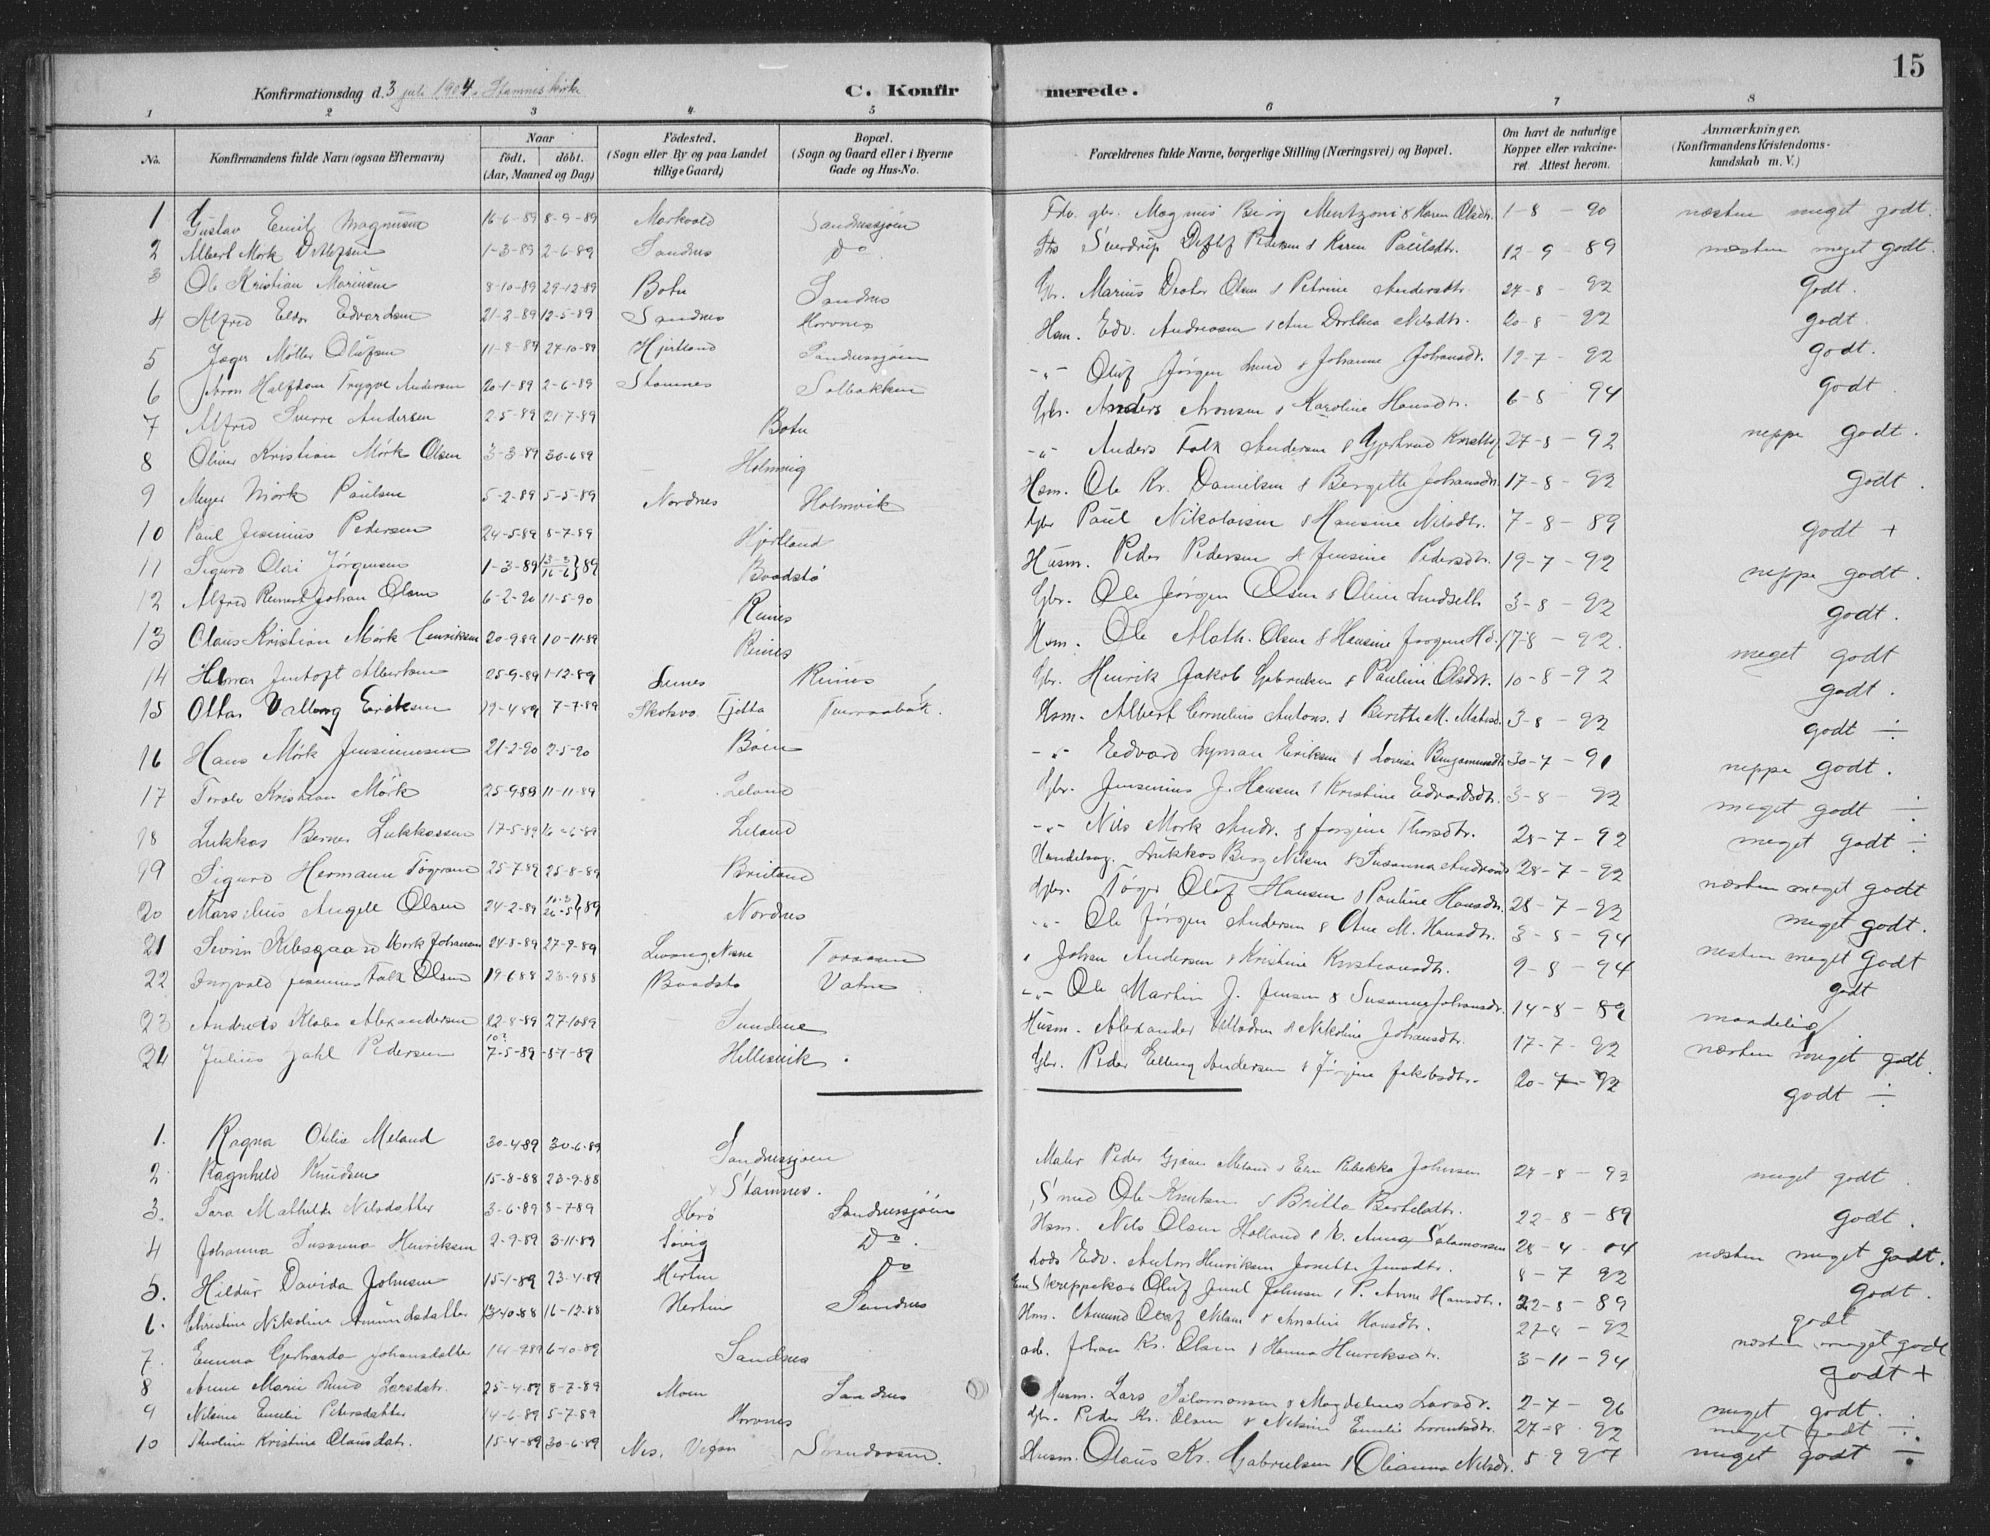 15
Konfirmationsdag d. 3 juli 1904. Stamnes kirke
C. Konfirmerede.
1 2 3 4 5 6 7 8
No. Konfirmandens fulde Navn (ogsaa Efternavn) Naar født. døbt. (Aar, Maaned og Dag) Fødested. (Sogn eller By og paa Landet tillige Gaard) Bopæl. (Sogn og Gaard eller i Byerne Gade og Hus-No. Forældrenes fulde Navne, borgerlige Stilling (Næringsvei) og Bopæl. Om havt de naturlige Kopper eller vaccineret. Attest herom. Anmærkninger. (Konfirmandens Kristendomskundskab m. V.)
1 Gustav Emil Magnusen 16-6-89 8-9-89 Sandnessjøen gbr. Magnus Berg Mentzoni & Karen Olsdtr. 1-8-90 næsten meget godt.
2 Albert Mørk Ditlefsen 1-3-89 2-6-89 Sandnes Do Sverdrup Detlef Pedersen & Karen Paulsdtr. 12-9-89 næsten meget godt.
3 Ole Kristian Mariusen 8-10-89 29-12-89 Botn Sandnes Gbr. Marius Olsen & Petrine Andersdtr. 27-8-92 Godt.
4 Alfred Edvardsen 21-2-89 12-5-89 Sandnes Horvnes Hsm. Edv. Andreasen & Ane Dorthea Nilsdtr. 20-8-92 godt.
5 Jæger Møller Olufsen 11-8-89 27-10-89 Hjertland Sandnessjøen -"- Oluf Jørgen Lund & Johanne Johansdtr. 19-7-92 godt.
6 Aron Halfdan Trygve Andersen 20-1-89 2-6-89 Stamnes Solbakken Gbr. Anders Aronsen & Karoline Hansdtr. 6-8-94 godt
7 Alfred Sverre Andersen 2-5-89 21-7-89 Botn -"- Anders Falk Andersen & Gjertrud 27-8-92 neppe godt.
8 Oliver Kristian Mørk Olsen 3-3-89 30-6-89 Holmvig Hsm. Ole Kr. Danielsen & Bergette Johansdtr. 17-8-92 godt.
9 Meyer Mørk Paulsen 5-2-89 5-5-89 Nordnes Holmvik Gbr Paul Nikolaisen & Hansine Nilsdtr. 7-8-89 godt +
10 Paul Jensenius Pedersen 24-5-89 8-7-89 Hjertland Husm. Peder Pedersen & Jensine Pedersdtr. 19-7-92 neppe godt.
11 Sigurd Olai Jørgensen 1-3-89 Baadstø Gbr. Ole Jørgen Olsen & Oline 3-8-92 godt.
12 Alfred Reinert Johan Olsen 6-2-90 11-5-90 Reines Hsm. Ole Math. Olsen & Hansine 17-8-92. meget godt
13 Olaus Kristian Mørk Henriksen 20-9-89 10-11-89 Reines Gbr. Henrik Jakob Gabrielsen & Pauline Olsdtr. 10-8-92 godt.
14 Helmer Jentoft Albertsen 25-9-89 1-12-89 Reines Hsm. Albert Cornelius Antons. & Berethe M. 3-8-92 godt ÷
15 Ottar Eriksen 19-4-89 7-7-89 Tjøtta -"- Edvard Lyman Eriksen & Lovise Benjaminsdtr. 30-7-91 neppe godt.
16 Hans Mørk Jensinussen 21-2-90 2-5-90 Bøen Gbr. Jensinius J. Hansen & Kristine Edvardsdtr. 3-8-92 meget godt ÷
17 Torolv Kristian Mørk 25-9-89 11-11-89 Leland -"- Nils Mørk Andr. & Jørgine Thorsdtr. 28-7-92 meget godt ÷
18 Lukkas Berner Lukkassen 17-5-89 16-6-89 Leland Handelsm. Lukkas Berg Nilsen & Susanna 28-7-92 næsten meget godt
19 Sigurd Hermann Tøgersen 25-7-89 25-8-89 Breiland Gbr. Tøger Olaf Hansen & Pauline Hansdtr. 28-7-92 meget godt.
20 Marselius Angell Olsen 24-2-89 Nordnes -"- Ole Jørgen Andersen & Ane M. Hansdtr. 3-8-94 nesten meget godt
21 Sevrin Mørk Johansen 24-8-89 27-9-89 " Johan Andersen & Kristine Kristiansdtr. 9-8-94 godt
22 Ingvald Falk Olsen 19-6-88 23-9-88 Baadstø Vatne -"- Ole Martin J. Jensen & Susanne Johansdtr. 14-8-89 maadelig.
23 Andreas Klæbo Alexandersen 22-8-89 27-10-89 Husm. Alexander & Nikoline Johansdtr. 17-7-92 næsten meget godt.
24 Julius Dahl Pedersen 7-5-89 8-7-89 Hellesvik. Gbr. Peder Elling Andersen & Jørgine Jakobsdtr. 20-7-92 godt ÷
1. Ragna Otelie Meland 30-4-89 30-6-89 Sandnessjøen Maler Peder Meland & Elen Rebekka Johnsen 24-8-92 meget godt.
2 Ragnhild Knudsen 15-8-88 23-9-88 Stamnes. Smed Ole Knutsen & Britta Berteldtr. 22-8-89 godt.
3. Sara Mathilde Nilsdatter 3-6-89 8-7-89 Herø Sandnessjøen Hsm. Nils Olsen & E. Anna Salamonsen 28-4-04 næsten meget godt.
4 Johanna Susanna Henriksen 2-9-89 3-11-89 Søvig Do. Lods Edv. Anton Henriksen Jonette Jensdtr. 8-7 92 godt.
5. Hildur Davida Johnsen 15-1-89 23-4-89 Do Oluf Johnsen & P. Anne Hansdtr. 22-8-89 godt
6. Christine Nikoline Amundsdatter 13-10-88 16-12-88 Sandnes Hsm. Amund Olaf & Analie Hansdtr. 27-8-92 næsten meget godt
7. Emma Gerharda Johansdatter 6-10-89 Sandnes Johan Kr. Olsen & Hanna Henriksdtr. 3-11-94 godt +
8 Anne Marie Larsdtr. 25-4-89 8-7-89 Moen Sandnes Husm. Lars Salomonsen & Magdelene Larsdtr. 2-7-96 meget godt.
9 Nilsine Emelie Petersdatter 14-6-89 5-7-89 Horvnes Gbr. Peder Kr. Olsen & Nilsine Emelie Lorentsdtr. 27-8-92 meget godt ÷
10 Kristine Olausdatr. 15-4-89 30-6-89 Nes, Vegan Husm. Olaus Kr. Gabrielsen & Olianna Nilsdr. 5-9 97 meget godt ÷